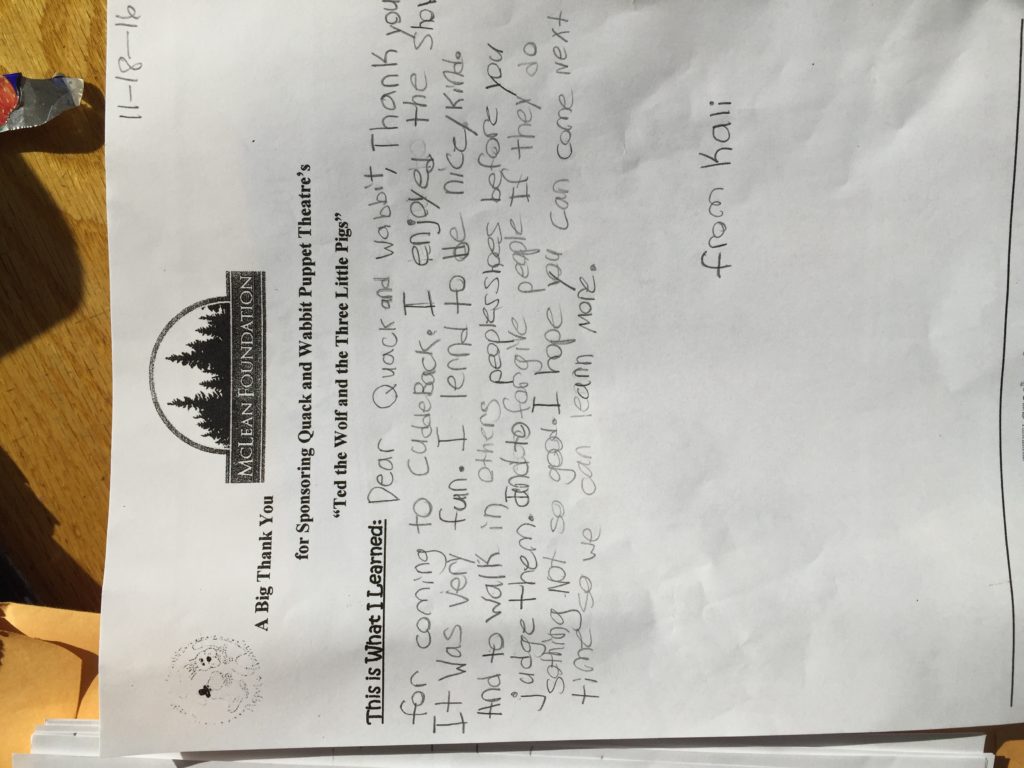 11-18-16
McLean Foundation
A Big Thank You
for Sponsoring Quack and Wabbit Puppet Theatre's
"Ted the Wolf and the Three Little Pigs"
This is What I Learned: Dear Quack and Wabbit, Thank you
for coming to CuddeBack. I enjoyed the Show
It was very fun. I lernd to be nice/kind.
And to walk in others peoplesshoes before you
judge them. And to forgive people If they do
sothing Not so good. I hope you can come Next
time so we can leann More.
from Kali